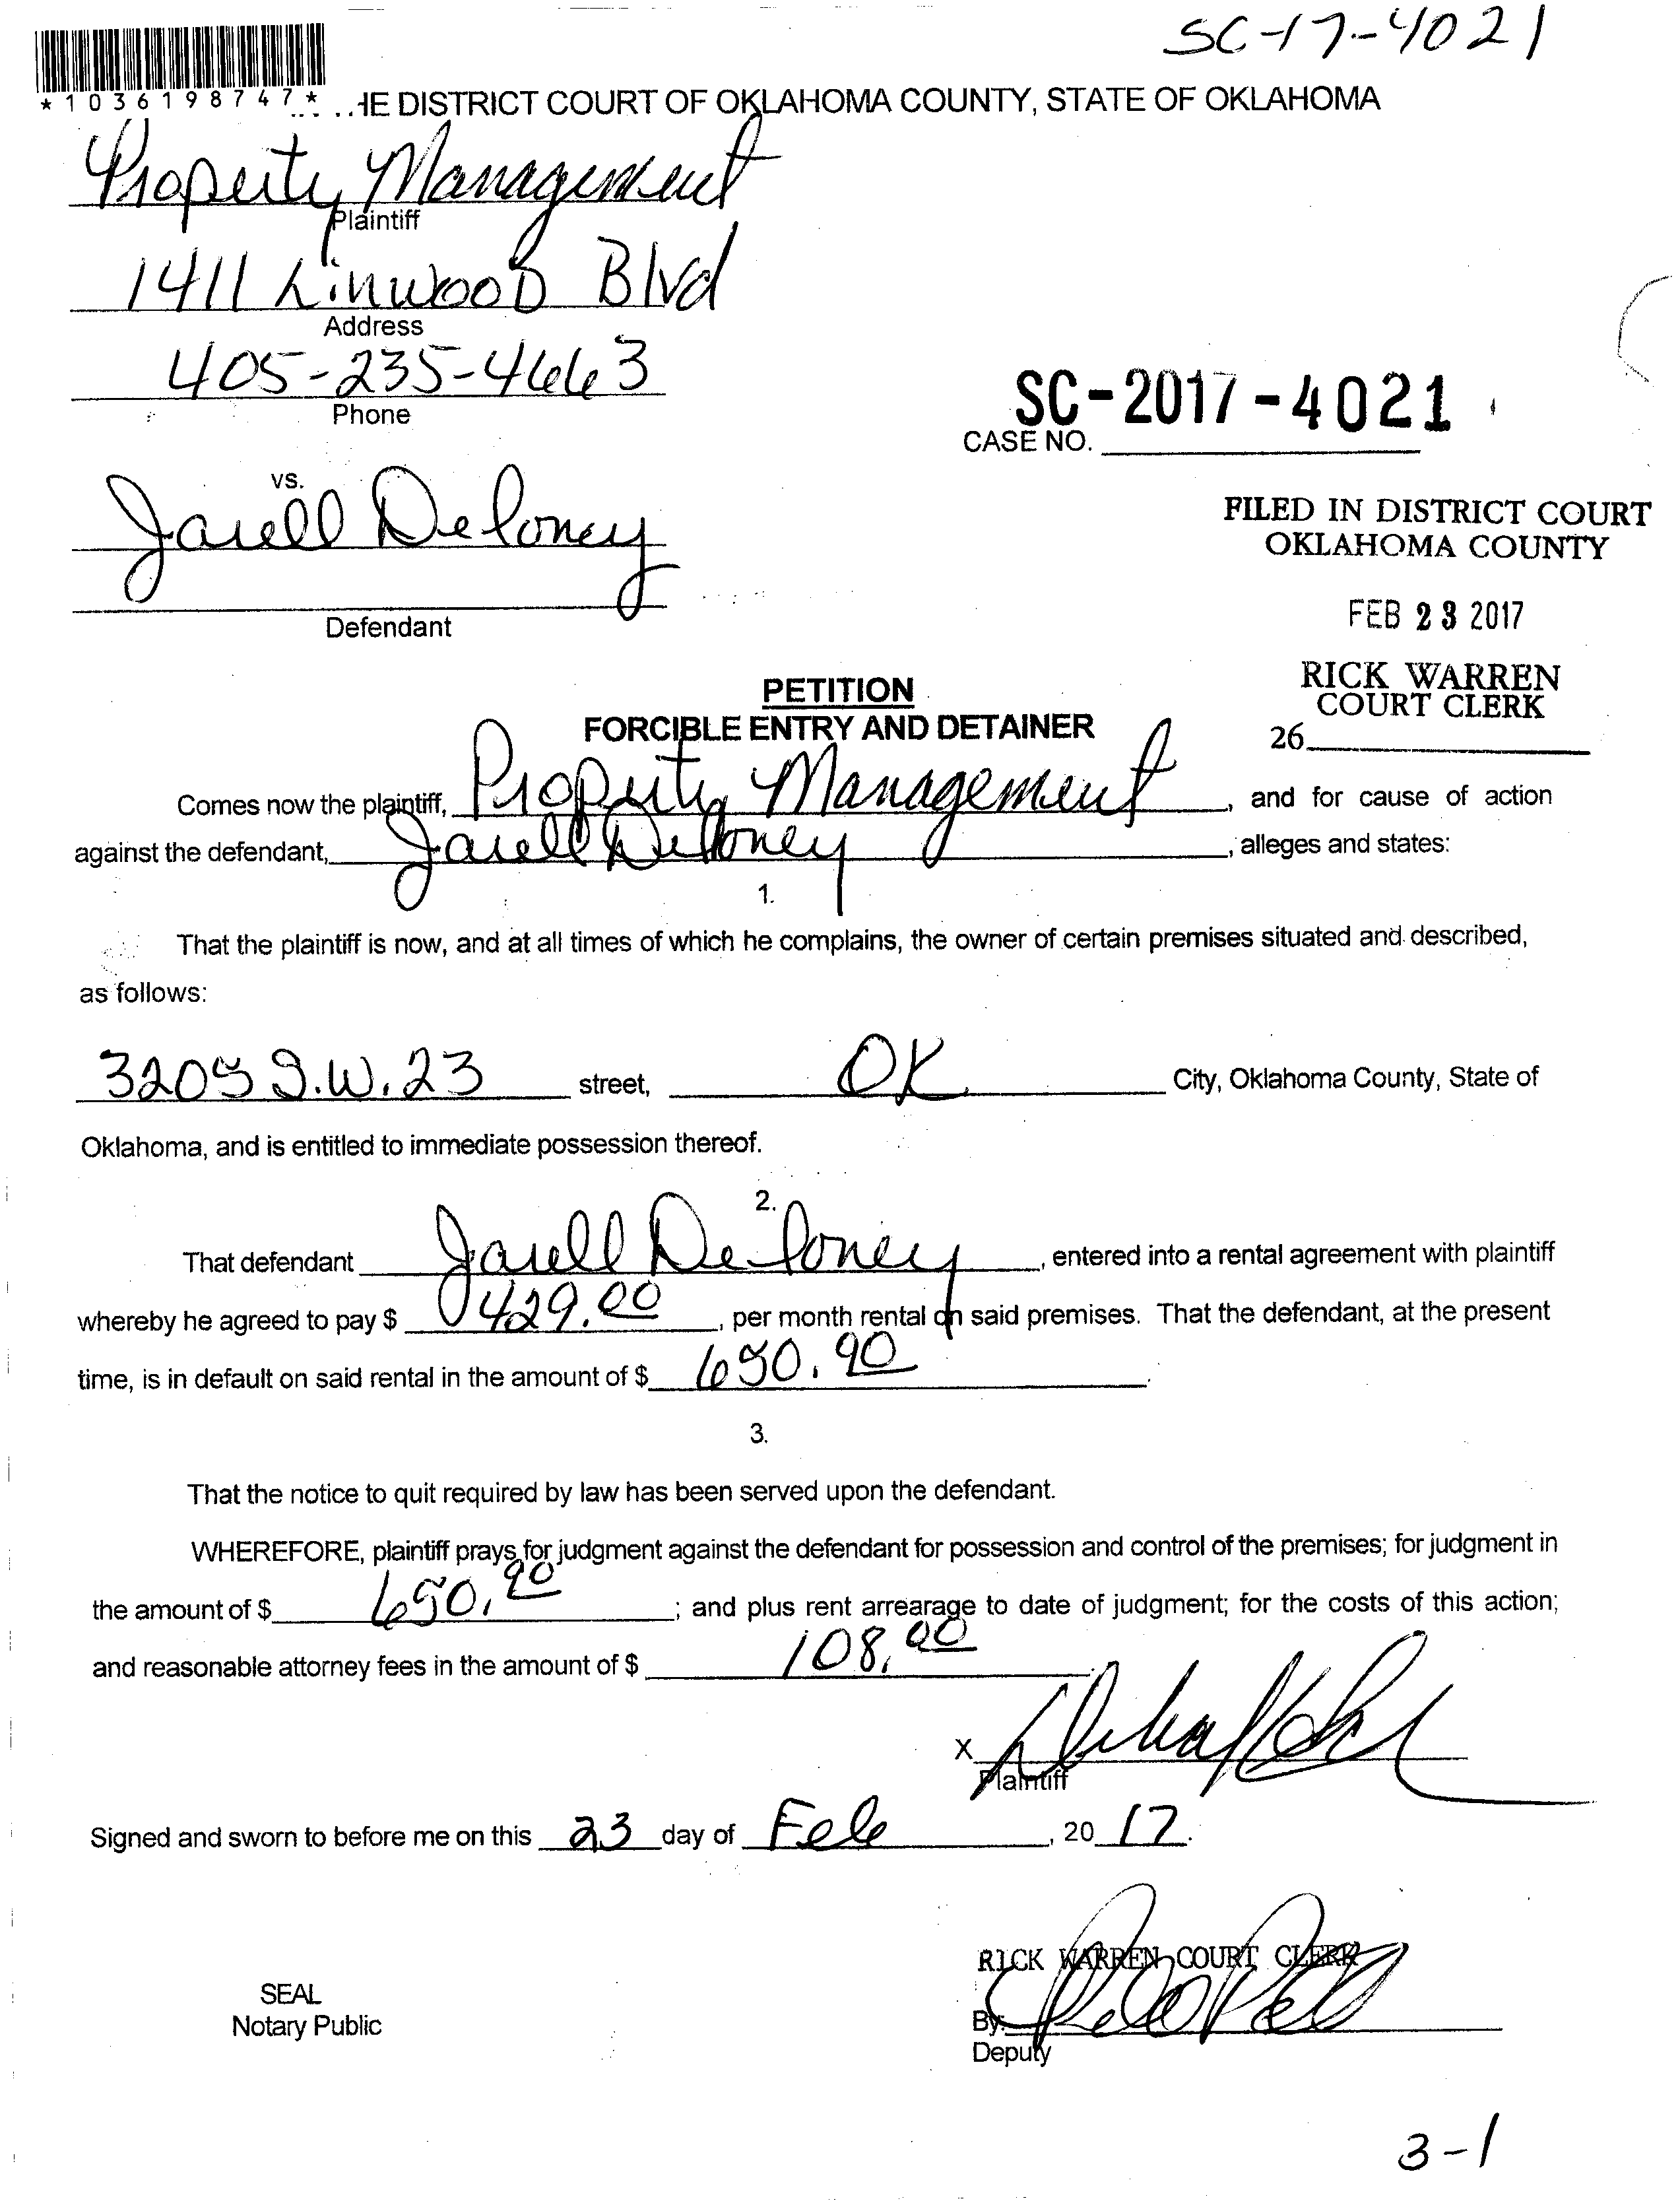 SC-17-4021
*1036198747*
HE DISTRICT COURT OF OKLAHOMA COUNTY, STATE OF OKLAHOMA
Property Management
Plaintiff
1411 Linwood Blvd
Address
405-235-4663
Phone
SC-2017-4021
CASE NO.
vs.
Jarell Deloney
Defendant
FILED IN DISTRICT COURT
OKLAHOMA COUNTY
FEB 23 2017
RICK WARREN
COURT CLERK
26
PETITION
FORCIBLE ENTRY AND DETAINER
Comes now the plaintiff, Property Management, and for cause of action
against the defendant, Jarell Deloney, alleges and states:
1.
That the plaintiff is now, and at all times of which he complains, the owner of certain premises situated and described,
as follows:
3205 S.W. 23 street, OK City, Oklahoma County, State of
Oklahoma, and is entitled to immediate possession thereof.
2.
That defendant Jarell Deloney, entered into a rental agreement with plaintiff
whereby he agreed to pay $ 429.00, per month rental on said premises. That the defendant, at the present
time, is in default on said rental in the amount of $ 650.90.
3.
That the notice to quit required by law has been served upon the defendant.
WHEREFORE, plaintiff prays for judgment against the defendant for possession and control of the premises; for judgment in
the amount of $ 650.90; and plus rent arrearage to date of judgment; for the costs of this action;
and reasonable attorney fees in the amount of $ 108.00.
X
Plaintiff
Signed and sworn to before me on this 23 day of Feb, 20 17.
RICK WARREN COURT CLERK
SEAL
Notary Public
By:
Deputy
3-1